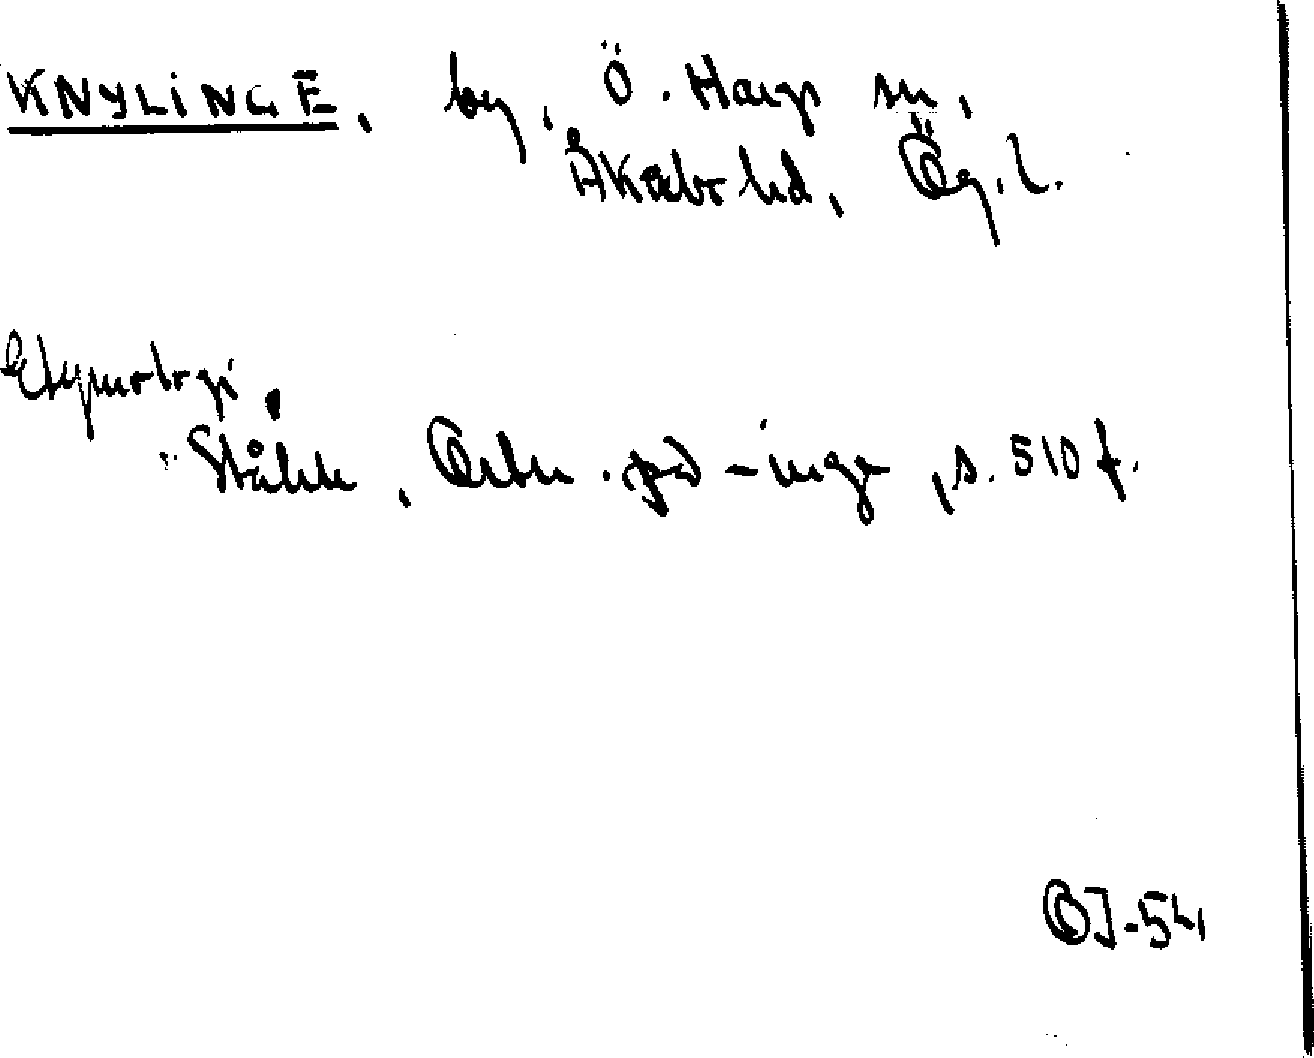 KNYLINGE, by, Ö. Hargs sn,
Åkerbo hd, Ög. l.
Etymologi.
Ståhle, Ortn. på -inge, s. 510 f.
OJ-54